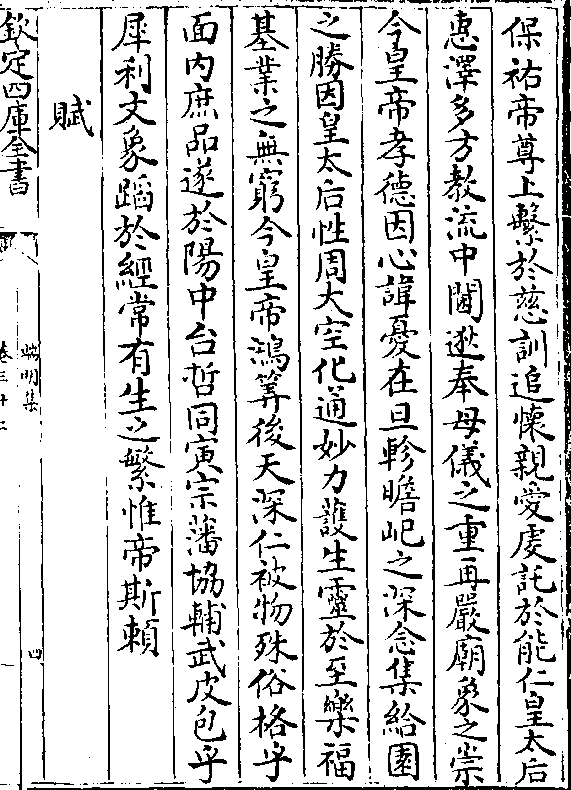 保祐帝尊上繫於慈訓追懷親愛虔託於能仁皇太后
惠澤多方教流中閫逖奉母儀之重再嚴廟象之崇
今皇帝孝德因心諱憂在旦軫瞻屺之深念集給園
之勝因皇太后性周大空化通妙力護生靈於至樂福
基業之無窮今皇帝鴻筭後天深仁被物殊俗格乎
面内庶品遂於陽中台哲同寅宗藩協輔武皮包乎
犀利文象蹈於經常有生之繁惟帝斯賴
賦
欽定四庫全書
端明集
卷三十二
四